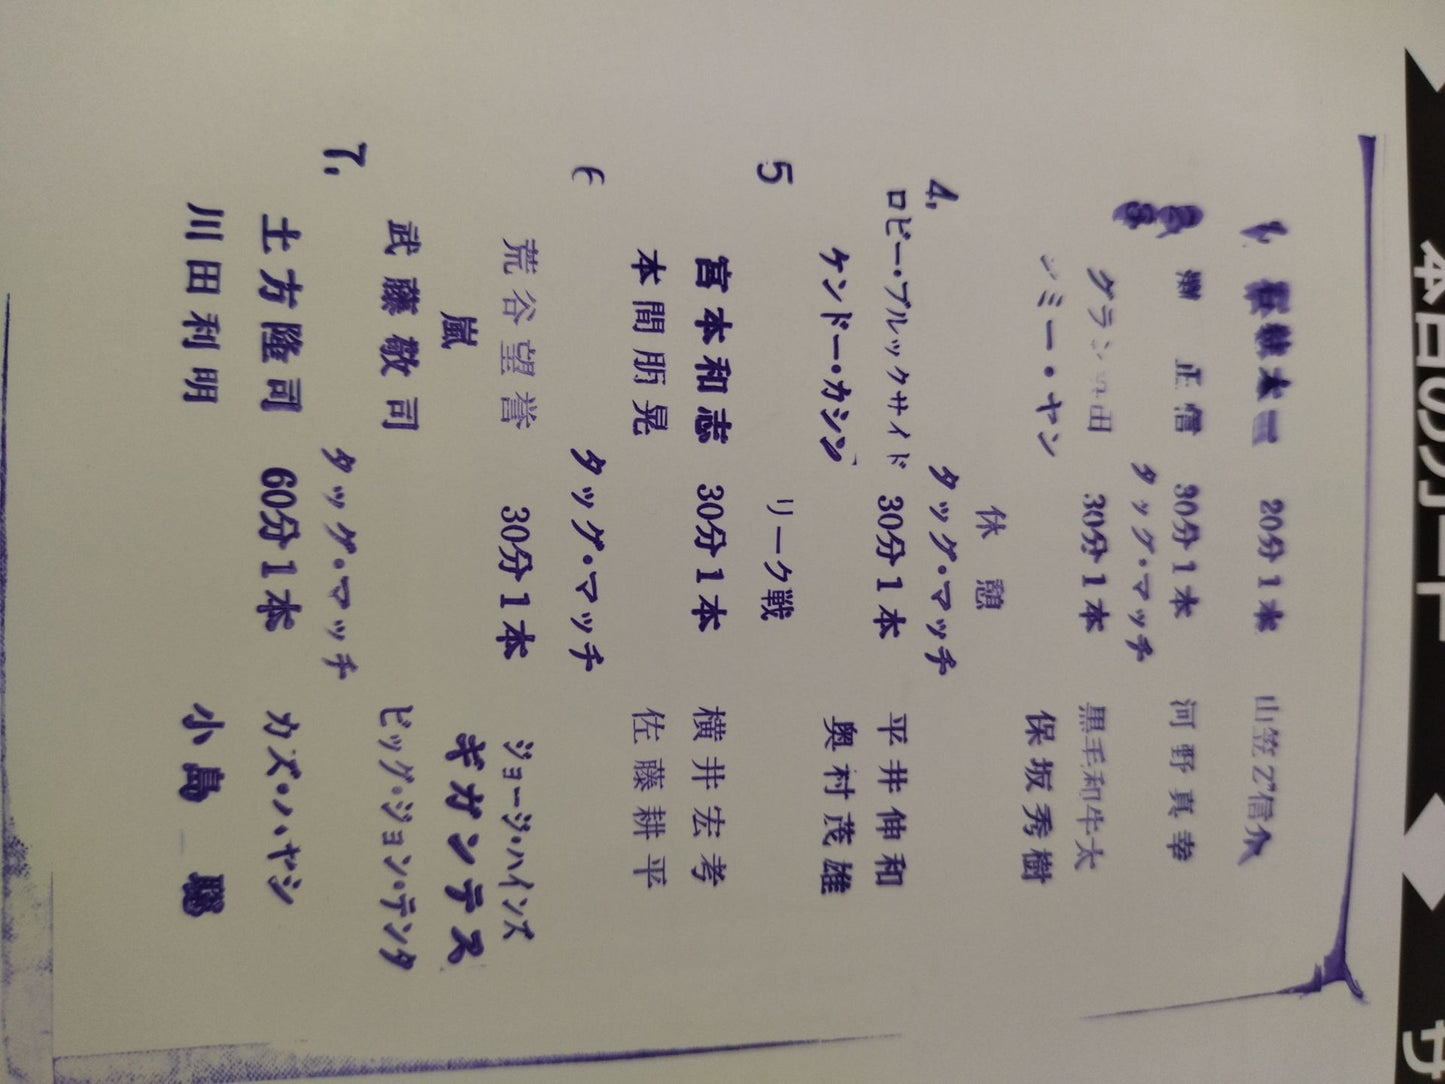 本日のカード
20分1本
山笠Z"信介
正信 30分1本 河野真幸
タッグ・マッチ
30分1本 黒毛和牛太
ミー・ヤン 保坂秀樹
休憩
4, タッグ・マッチ
ロビー・ブルックサイド 30分1本 平井伸和
ケンドー・カシン 奥村茂雄
5 リーク戦
宮本和志 30分1本 横井宏考
本間朋晃 佐藤耕平
6 タッグ・マッチ
荒谷望誉 30分1本 ジョージ・ハインズ
嵐 ギガンテス
武藤敬司 ビッグ・ジョン・テンタ
7, タッグ・マッチ
土方隆司 60分1本 カズ・ハヤシ
川田利明 小島 聡
サ